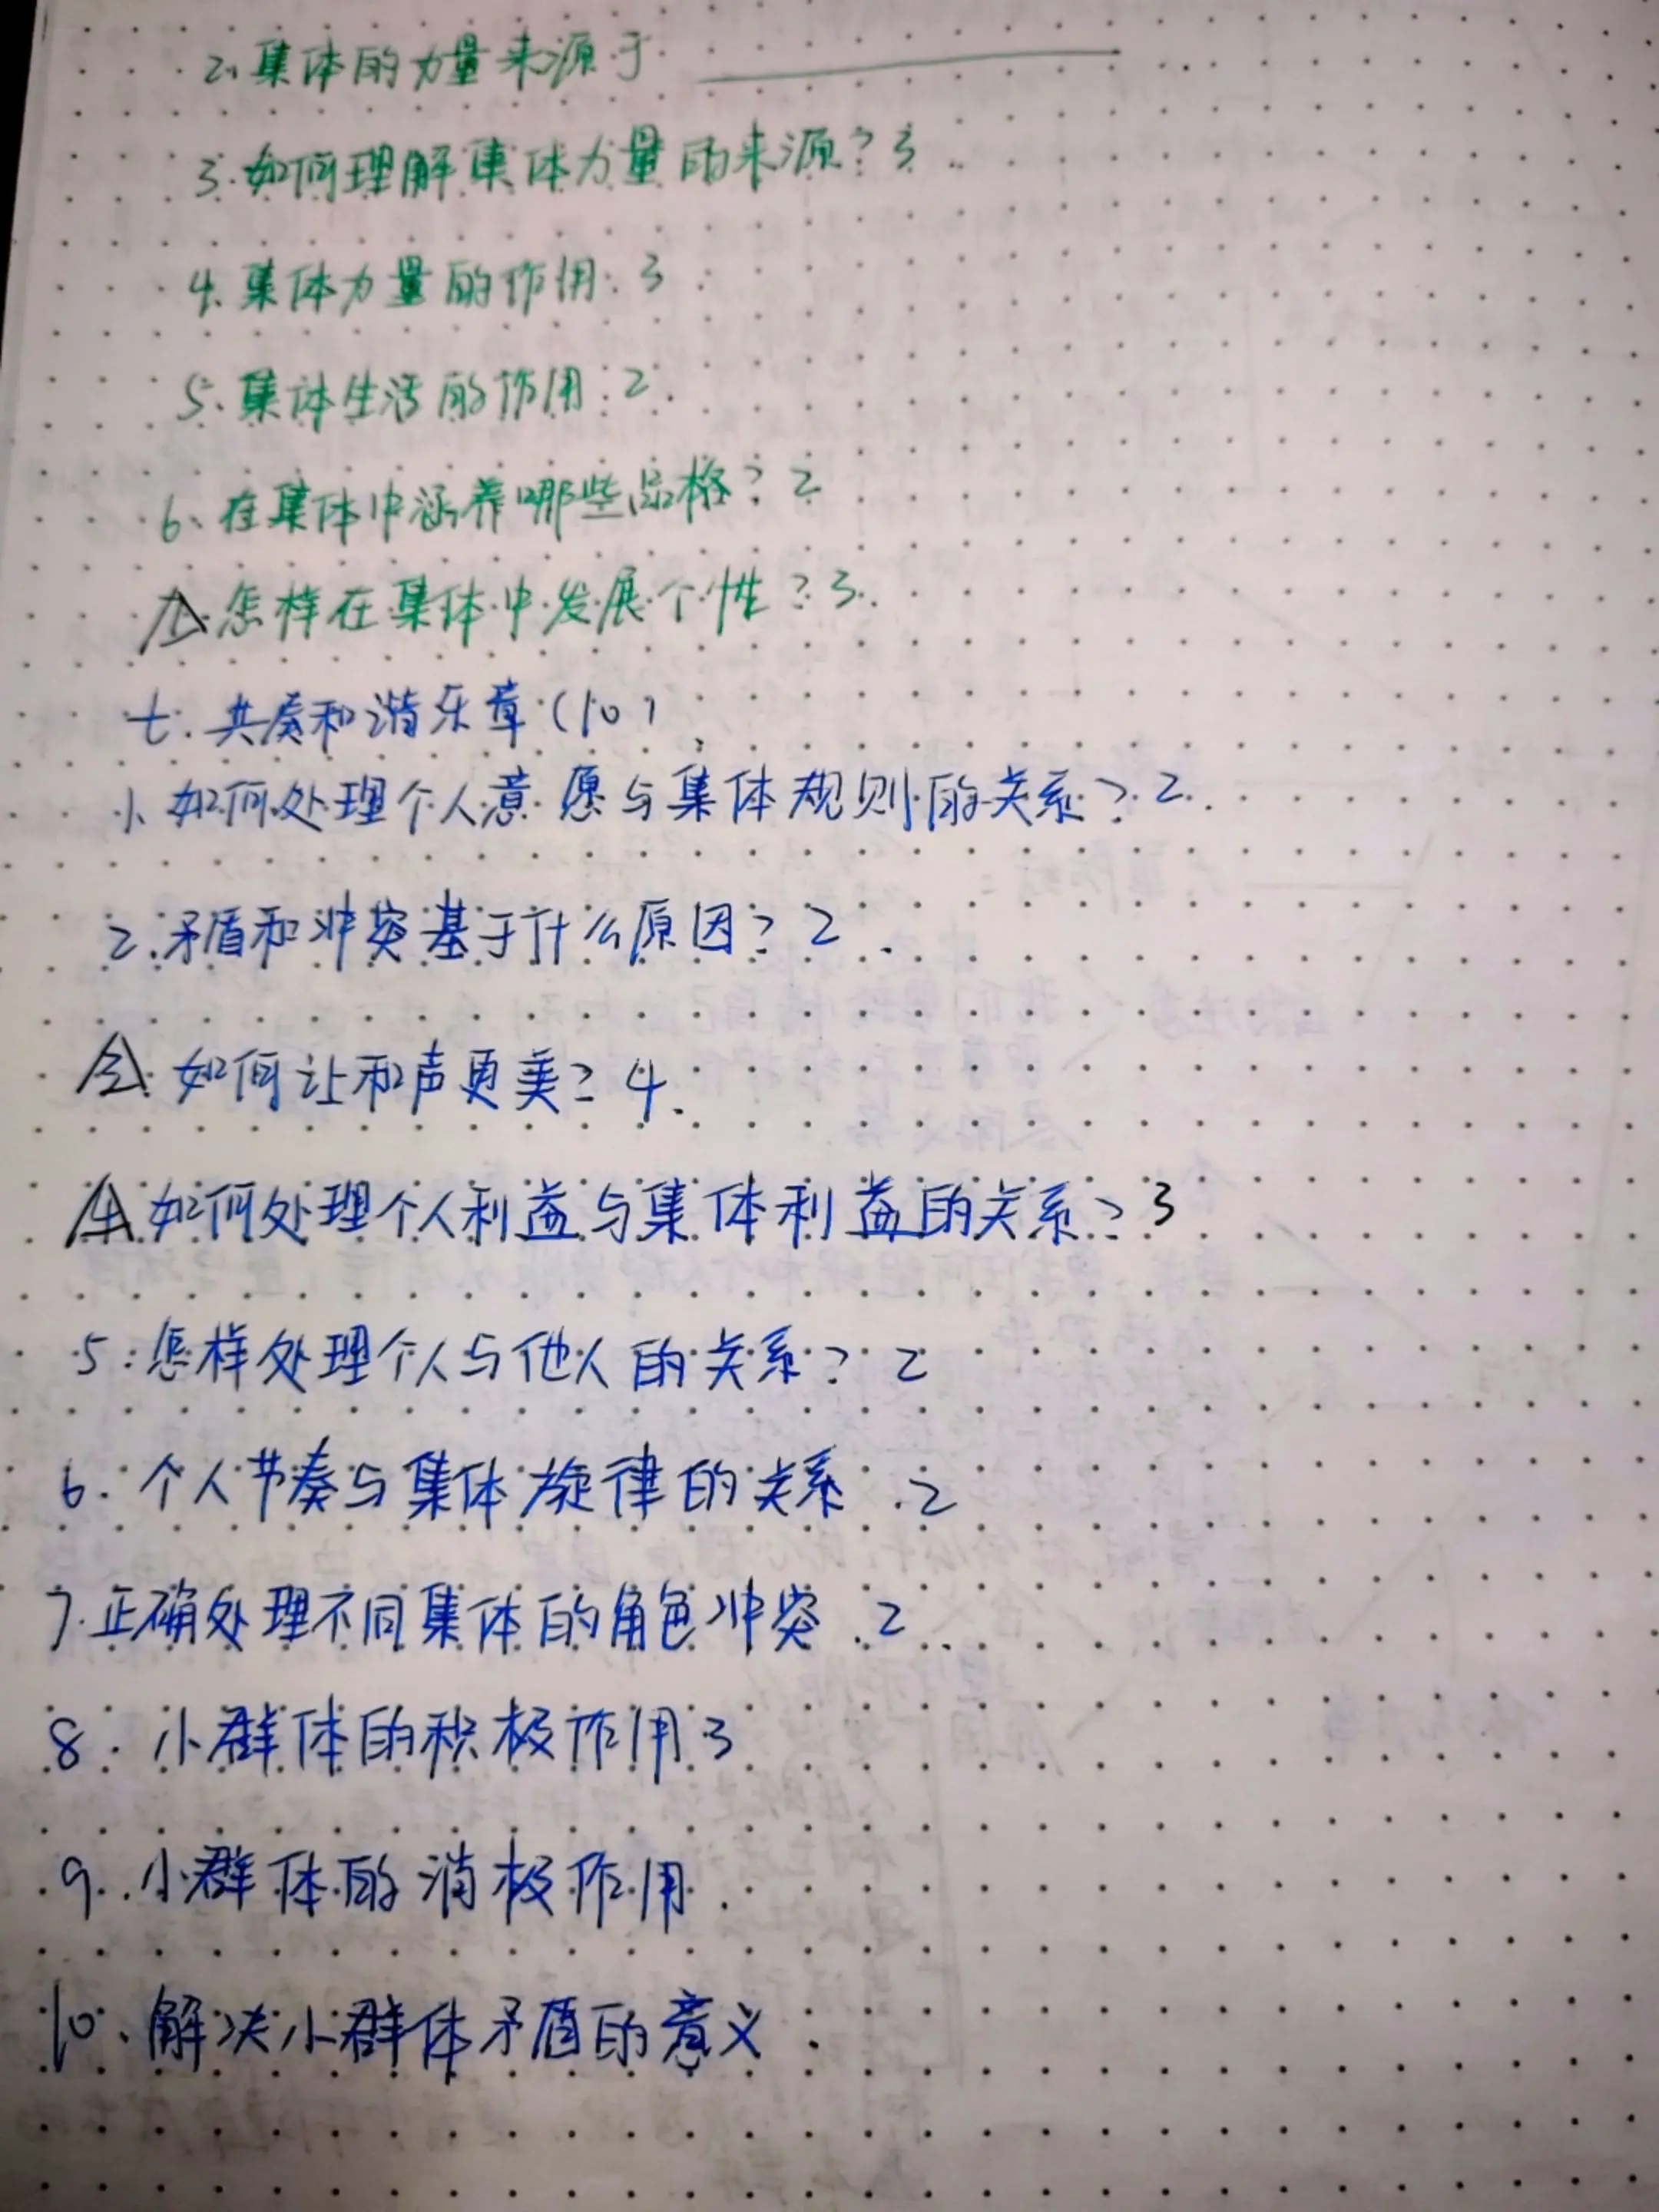 2、集体的力量来源于
3.如何理解集体力量的来源？3
4.集体力量的作用:3
5、集体生活的作用:2
6、在集体中涵养哪些品格？2
7.怎样在集体中发展个性？3
七.共奏和谐乐章(10)
1、如何处理个人意愿与集体规则的关系？2
2.矛盾和冲突基于什么原因？2
3.如何让和声更美？4
4.如何处理个人利益与集体利益的关系？3
5.怎样处理个人与他人的关系？2
6.个人节奏与集体旋律的关系.2
7.正确处理不同集体的角色冲突.2
8.小群体的积极作用.3
9.小群体的消极作用
10、解决小群体矛盾的意义